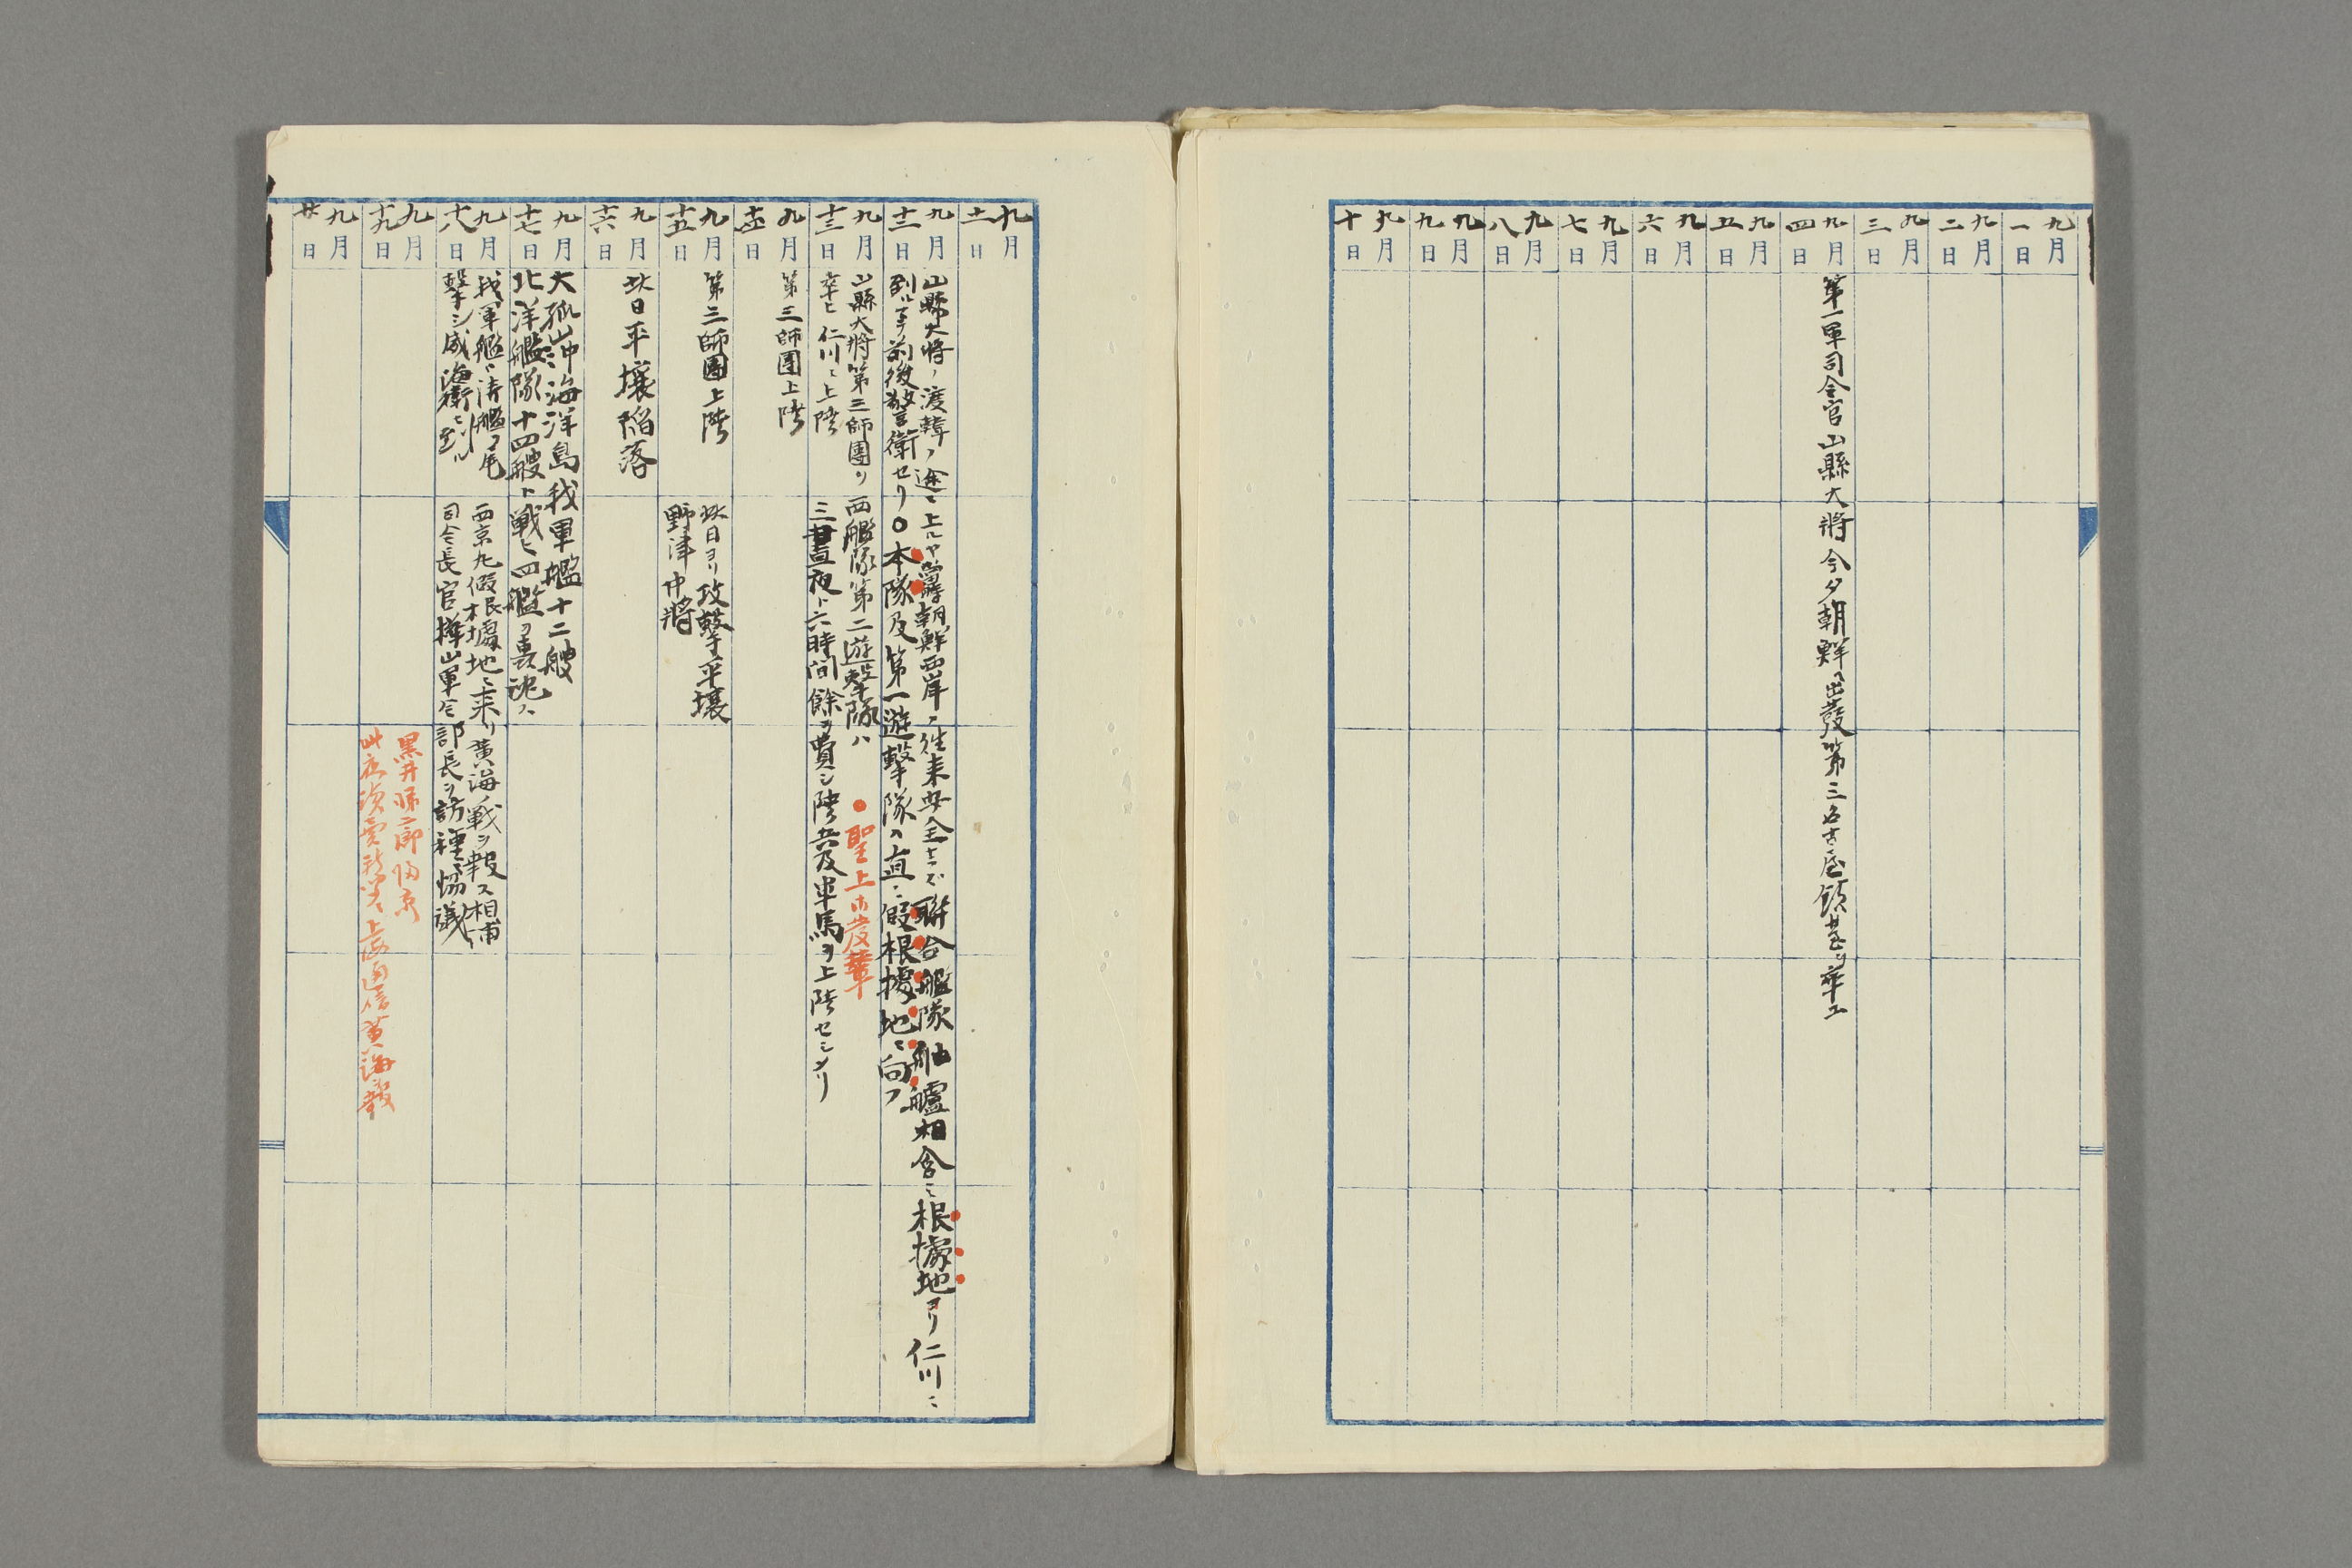 九月一日
九月二日
九月三日
九月四日
第一軍司令官山縣大將今夕朝鮮ヘ出發第三名古屋鎮臺ヲ率ユ
九月五日
九月六日
九月七日
九月八日
九月九日
九月十日
九月十一日
九月十二日
山縣大將ノ渡韓ノ途ニ上ルヤ朝鮮西岸ノ往来安全ナラズ聯合艦隊舳艫相含ミ根據地ヨリ仁川ニ
到ル前後警衛セリ〇本隊及第一遊撃隊ハ直ニ假根據地ニ向フ
九月十三日
山縣大將第三師團ヲ
率ヒ仁川ニ上陸
西艦隊第二遊撃隊ハ
三晝夜ト六時間餘ヲ費シ陸兵及軍馬ヲ上陸セシメリ
聖上御發輦
九月十四日
第三師團上陸
九月十五日
第三師團上陸
此日ヨリ攻撃平壌
野津中將
九月十六日
此日平壌陷落
九月十七日
大孤山沖海洋島我軍艦十二艘
北洋艦隊十四艘ト戦ヒ四艦ヲ轟沈ス
九月十八日
我軍艦ハ清艦ヲ尾
撃シ威海衛ニ到ル
西京丸假根據地ニ来リ黄海戦ヲ報ス相浦
司令長官樺山軍令部長ヲ訪種々協議
九月十九日
黒井悌二郎帰京
上海通信黄海報
九月廿日